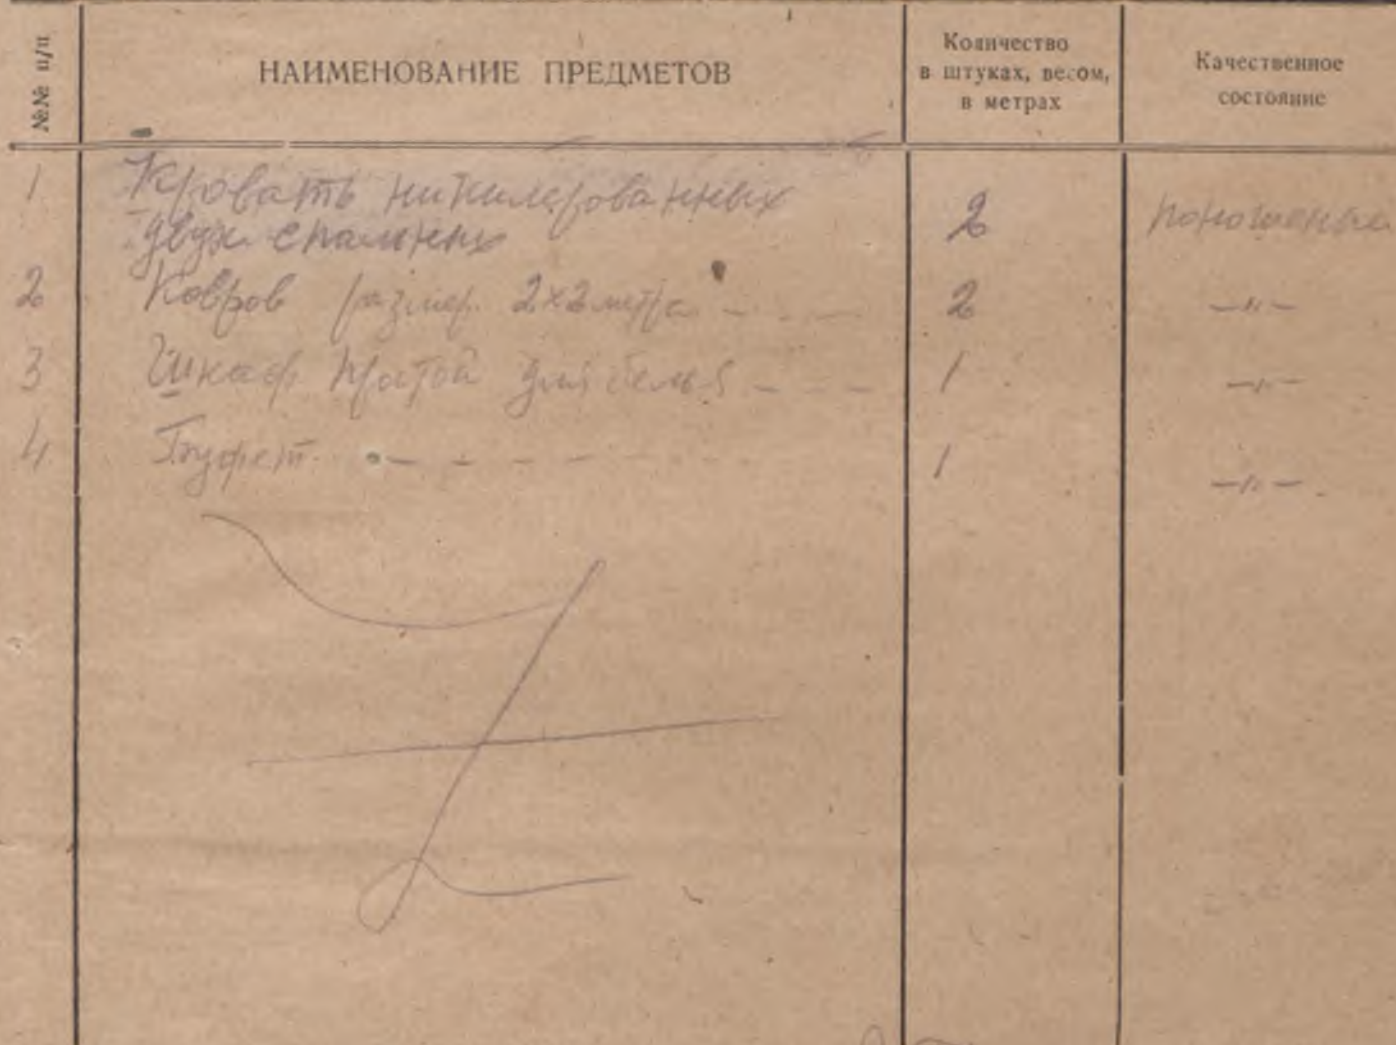 №№ п/п
НАИМЕНОВАНИЕ ПРЕДМЕТОВ
Количество
в штуках, весом,
в метрах
Качественное
состояние
1 Кровать никилерованных
двух спальных 2 поношеные
2 Ковров размер. 2х2 метра - - - 2 —"—
3 Шкаф простой для белья - - - 1 —"—
4 Буфет. - - - - - - - 1 —"—